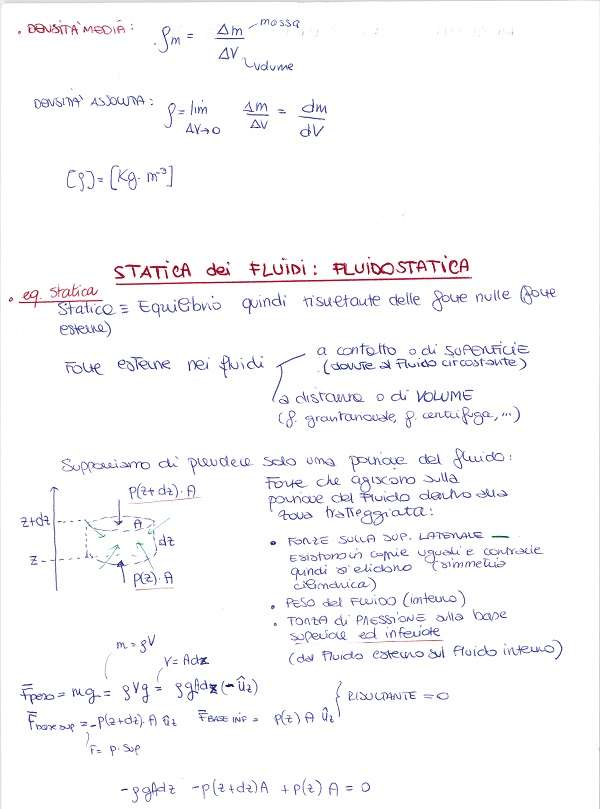 . DENSITÀ MEDIA: ρm = Δm/ΔV massa volume
DENSITÀ ASSOLUTA: ρ = lim ΔV→0 Δm/ΔV = dm/dV
[ρ] = [Kg · m⁻³]
STATICA dei FLUIDI: FLUIDOSTATICA
• eq. statica
Statica ≡ Equilibrio quindi risultante delle forze nulle (forze
esterne)
Forze esterne nei fluidi
a contatto o di SUPERFICIE
(dovute al fluido circostante)
a distanza o di VOLUME
(f. gravitazionale, f. centrifuga, ...)
Supponiamo di prendere solo una porzione del fluido:
P(z+dz)·A
z+dz
A
dz
z
P(z)·A
Forze che agiscono sulla
porzione del fluido dentro alla
zona tratteggiata:
• FORZE SULLA SUP. LATERALE —
Esistono in coppie uguali e contrarie
quindi si elidono (simmetria
cilindrica)
• PESO del FLUIDO (interno)
• FORZA di PRESSIONE sulla base
superiore ed inferiore
(dal fluido esterno sul fluido interno)
m = ρV
V = Adz
F̄peso = mg = ρVg = ρgAdz(-ûz)
F̄base sup = -P(z+dz)·A ûz F̄BASE INF = P(z) A ûz } RISULTANTE = 0
F = p · sup
-ρgAdz -p(z+dz)A + p(z) A = 0